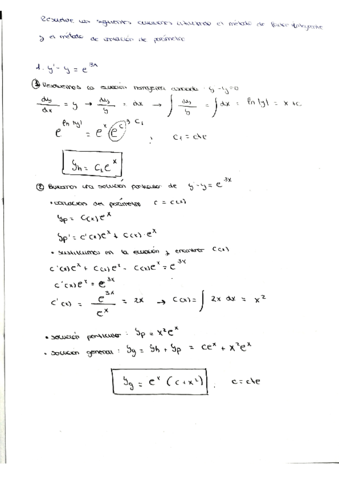 Resuelve las siguientes ecuaciones utilizando el método de factor integrante
y el método de variación de parámetro
1. y' - y = e^{3x}
① Resolvemos la ecuación homogénea asociada: y' - y = 0
dy/dx = y → dy/y = dx → ∫ dy/y = ∫ dx = ln|y| = x + c
e^{ln|y|} = e^x e^c → C₁ ; C₁ = cte
y_h = C₁ e^x
② Buscamos una solución particular de y' - y = e^{3x}
• variación del parámetro C = C(x)
y_p = C(x) e^x
y_p' = C'(x) e^x + C(x) · e^x
• sustituimos en la ecuación y encontrar C(x)
C'(x) e^x + C(x) e^x - C(x) e^x = e^{3x}
C'(x) e^x = e^{3x}
C'(x) = e^{3x}/e^x = 2x → C(x) = ∫ 2x dx = x²
• solución particular : y_p = x² e^x
• solución general : y_g = y_h + y_p = c e^x + x² e^x
y_g = e^x (c + x²) c = cte